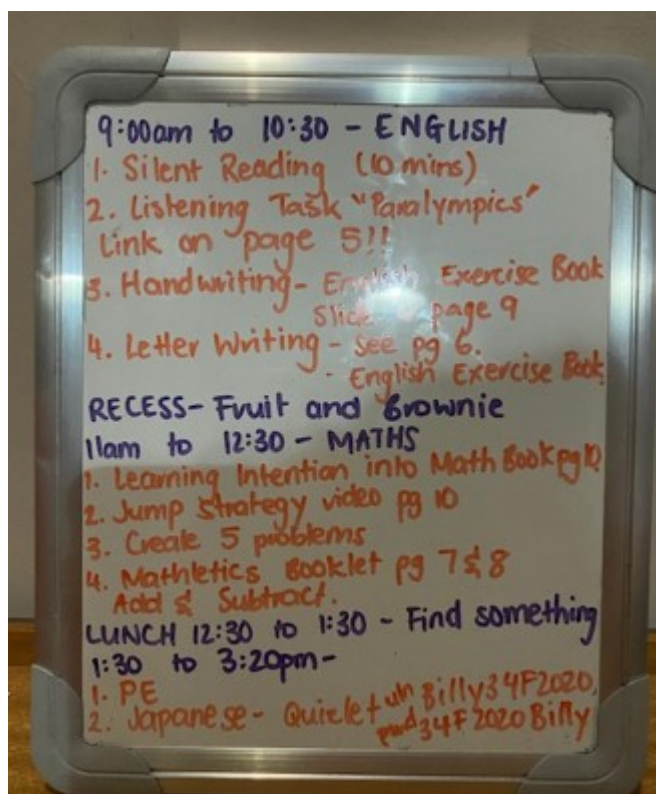 9:00am to 10:30 - ENGLISH
1. Silent Reading (10 mins)
2. Listening Task "Paralympics"
Link on page 5!!
3. Handwriting - English Exercise Book
Slide page 9
4. Letter Writing - See pg 6.
- English Exercise Book
RECESS - Fruit and Brownie
11am to 12:30 - MATHS
1. Learning Intention into Math Book pg 10
2. Jump Strategy video pg 10
3. Create 5 problems
4. Mathletics Booklet pg 7 & 8
Add & Subtract.
LUNCH 12:30 to 1:30 - Find something
1:30 to 3:20pm -
1. PE
2. Japanese - Quizlet u/n Billy34F2020,
pwd 34F2020Billy